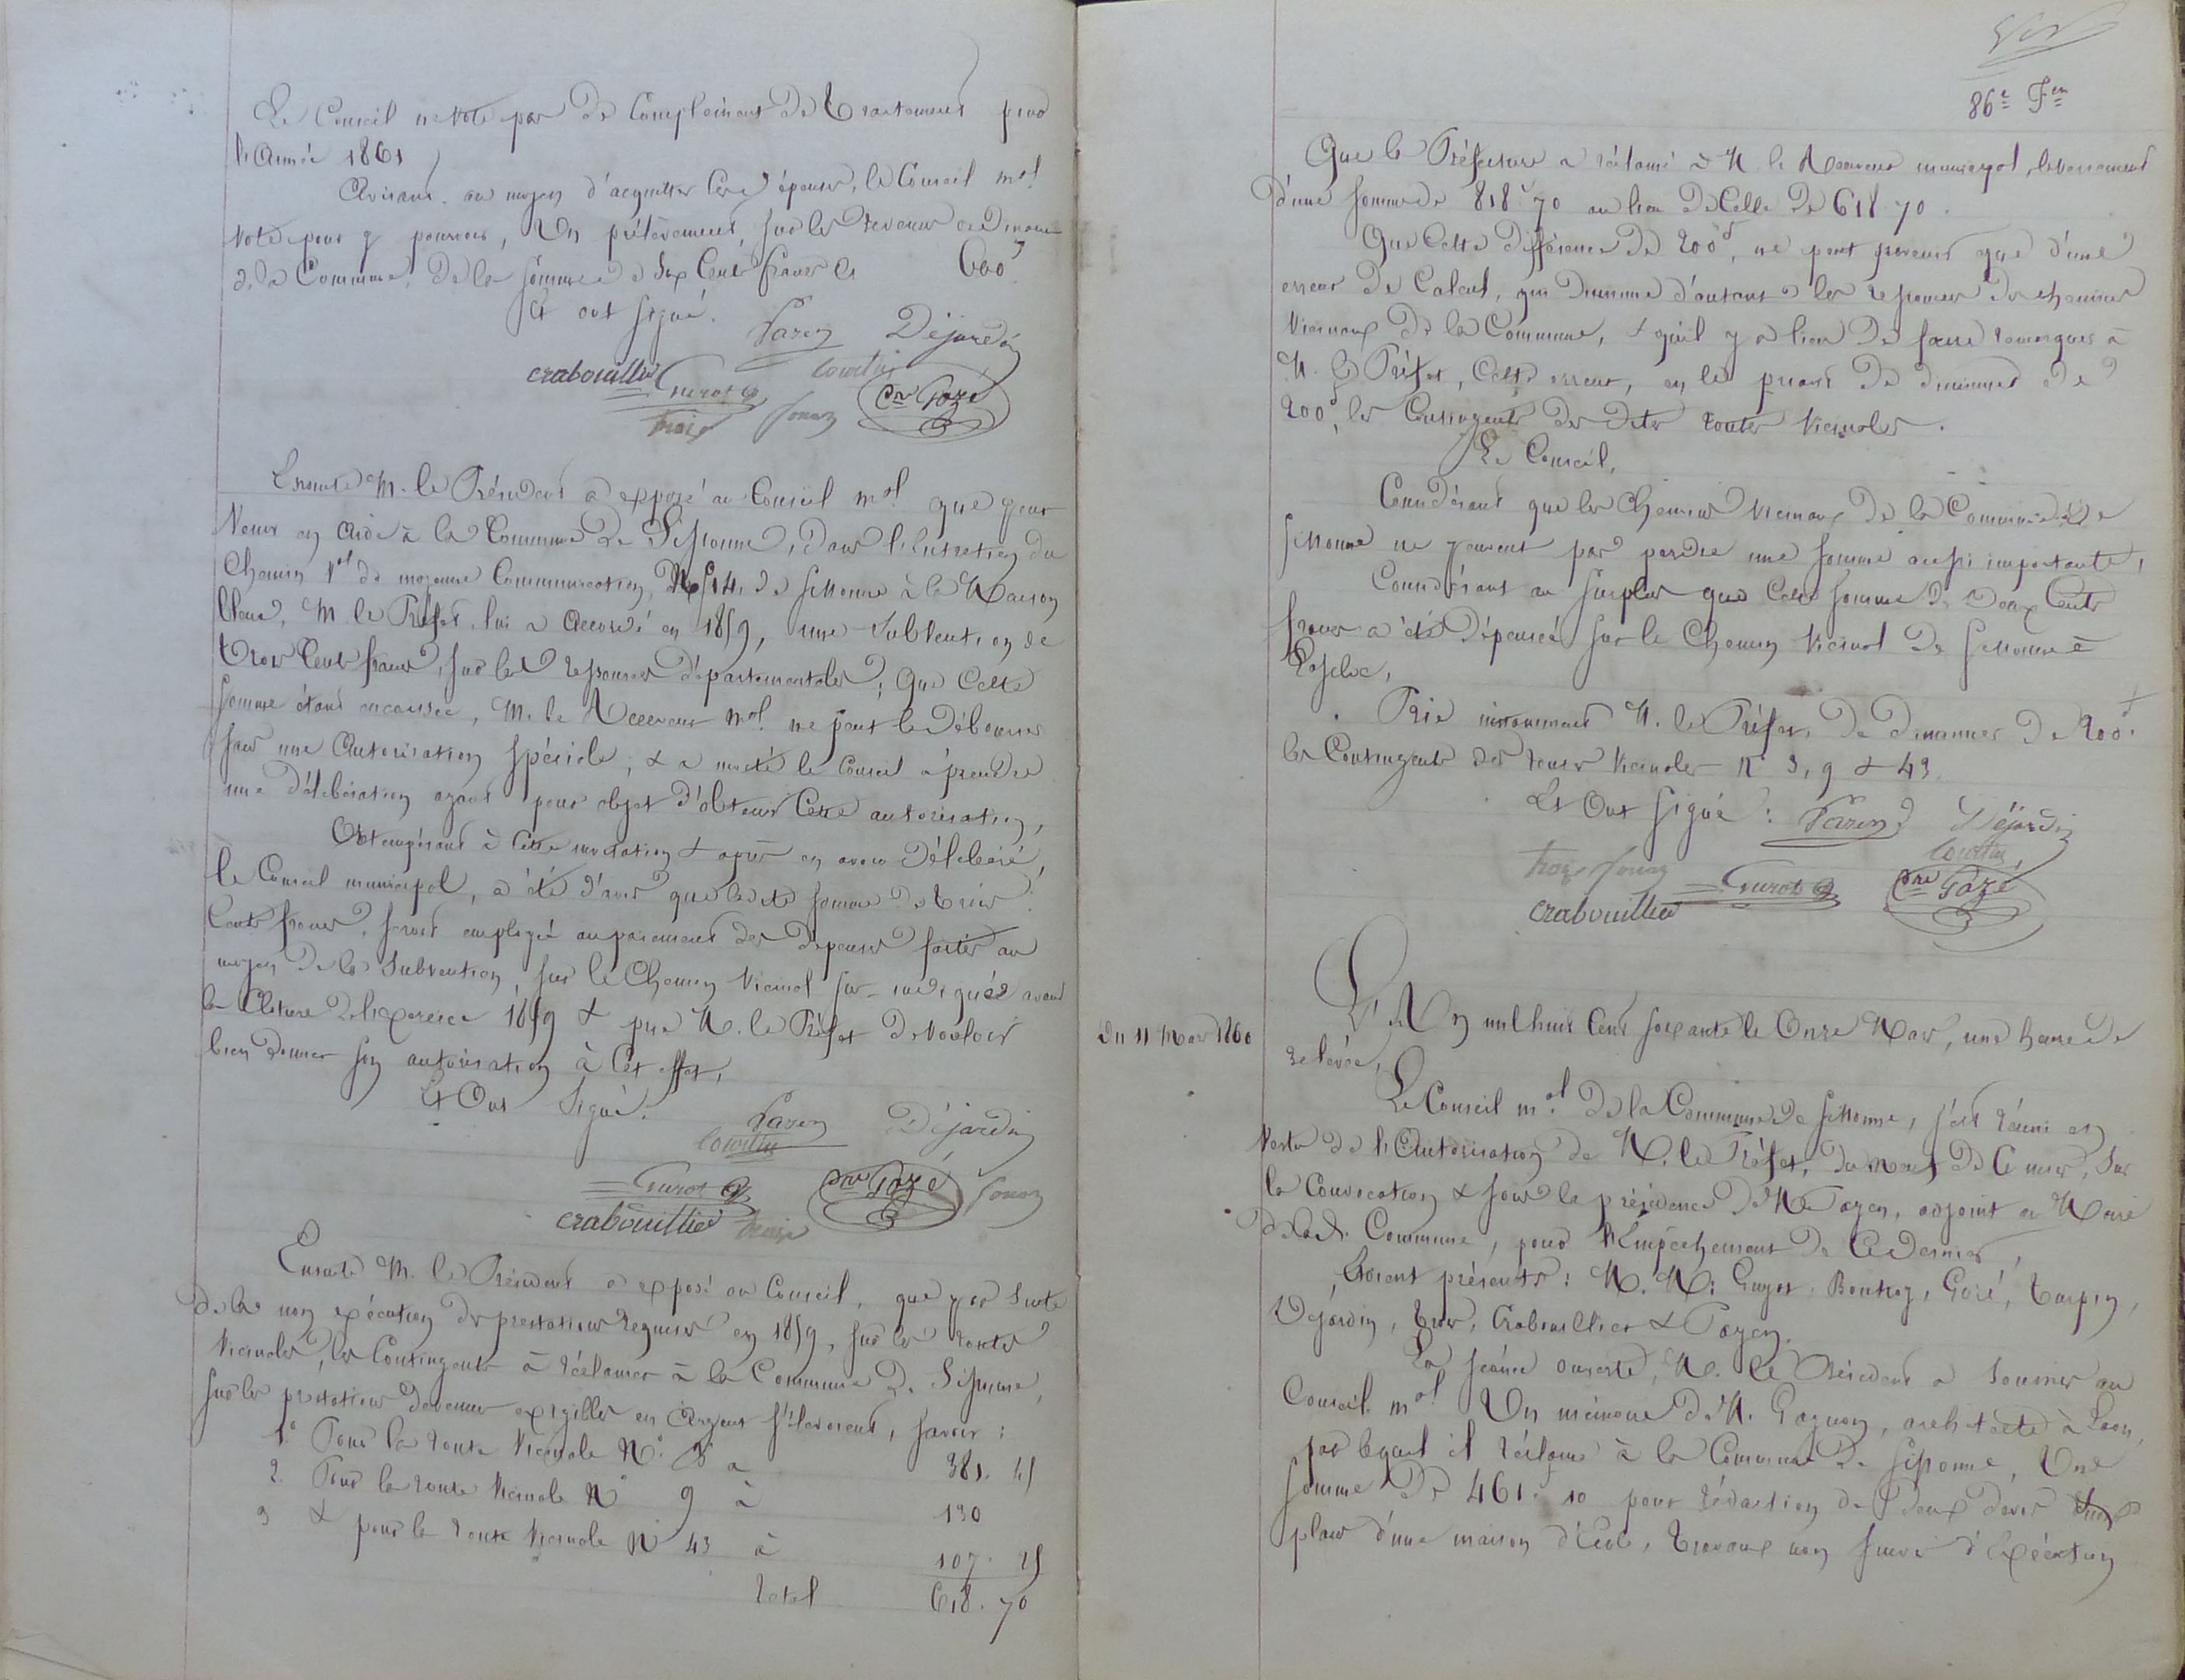 Le Conseil ne vote pas de Complément de Traitement pour
l'Année 1861
Avisant au moyen d'acquitter ces dépenses, le Conseil mal
Vote pour y pourvoir, Un prélèvement, sur les revenus ordinaires
de la Commune, de la somme de Six Cents francs ci 600f
Et ont signé.
Payen Déjardin
Courtin
Crabouillier Guyot One Gozé
Trois
Ensuite M. le Président a exposé au Conseil mal que pour
Venir en Aide à la Commune de Sissonne, dans l'Entretien du
Chemin Val de moyenne Communication, No 14, de Sissonne à la Maison
bleue, M. le Préfet, lui a Accordé en 1859, une Subvention de
trois Cents francs, sur les ressources départementales; Que Cette
somme étant encaissée, M. le Receveur mal ne peut la Débourser
sans une Autorisation Spéciale; & a invité le Conseil à prendre
une Délibération ayant pour objet d'obtenir Cette autorisation,
Obtempérant à Cette invitation & après en avoir Délibéré,
le Conseil municipal, a été d'avis que ladite somme de trois
Cents francs, serait employée au paiement des dépenses faites au
moyen de la Subvention, sur le Chemin Vicinal sus-indiqué avant
la Clôture de l'Exercice 1859 & prie M. le Préfet de Vouloir
bien donner son autorisation à Cet effet,
Et Ont Signé.
Payen Déjardin
Courtin
Guyot One Gozé
Crabouillier Trois
Ensuite M. le Président a exposé au Conseil, que par Suite
de la non exécution des prestations requises en 1859, sur les routes
Vicinales, les Contingents à réclamer à la Commune de Sissonne,
sur les prestations devenues exigibles en Argent s'élevaient, savoir:
1o Pour la route Vicinale No. 3 a 381. 45
2. Pour la route Vicinale No 9 à 130
3 & pour la route Vicinale No 43 à 107. 25
Total 618. 70
86e Fet
Que la Préfecture a réclamé à M. le Receveur municipal, le versement
d'une somme de 818f 70 au lieu de Celle de 618 70.
Que Cette différence de 200f, ne peut provenir que d'une
erreur de Calcul, qui diminue d'autant les ressources des chemins
Vicinaux de la Commune, & qu'il y a lieu de faire remarquer à
M. le Préfet, Cette erreur, en le priant de diminuer de
200f, les Contingents des dites routes Vicinales.
Le Conseil,
Considérant que les Chemins Vicinaux de la Commune de
Sissonne ne peuvent pas perdre une somme aussi importante,
Considérant au surplus que Cette somme de Deux Cents
francs a été Dépensée sur le Chemin Vicinal de Sissonne à
Prie instamment M. le Préfet, de diminuer de 200f.
les Contingents des routes Vicinales No 3, 9 & 43.
Et Ont signé: Payen Déjardin
Courtin
Guyot One Gozé
Crabouillier
Du 11 Mars 1860
L'An mil huit Cent soixante le Onze Mars, une heure de
relevée,
Le Conseil mal de la Commune de Sissonne, s'est réuni en
Vertu de l'Autorisation de M. le Préfet, du neuf de Ce mois, Sur
la Convocation & sous la présidence de M. Payen, adjoint au Maire
de lad. Commune, pour l'Empêchement de Ce dernier,
Etaient présents: M. M. Guyot, Boutroy, Gozé, Turpin,
Déjardin, Trois, Crabouillier & Payen.
La séance ouverte, M. le Président a soumis au
Conseil mal Un mémoire de M. Gagnon, architecte à Laon,
par lequel il réclame à la Commune de Sissonne, Une
somme de 461f 10 pour rédaction de deux devis
plans d'une maison d'Ecole, travaux non suivis d'Exécution